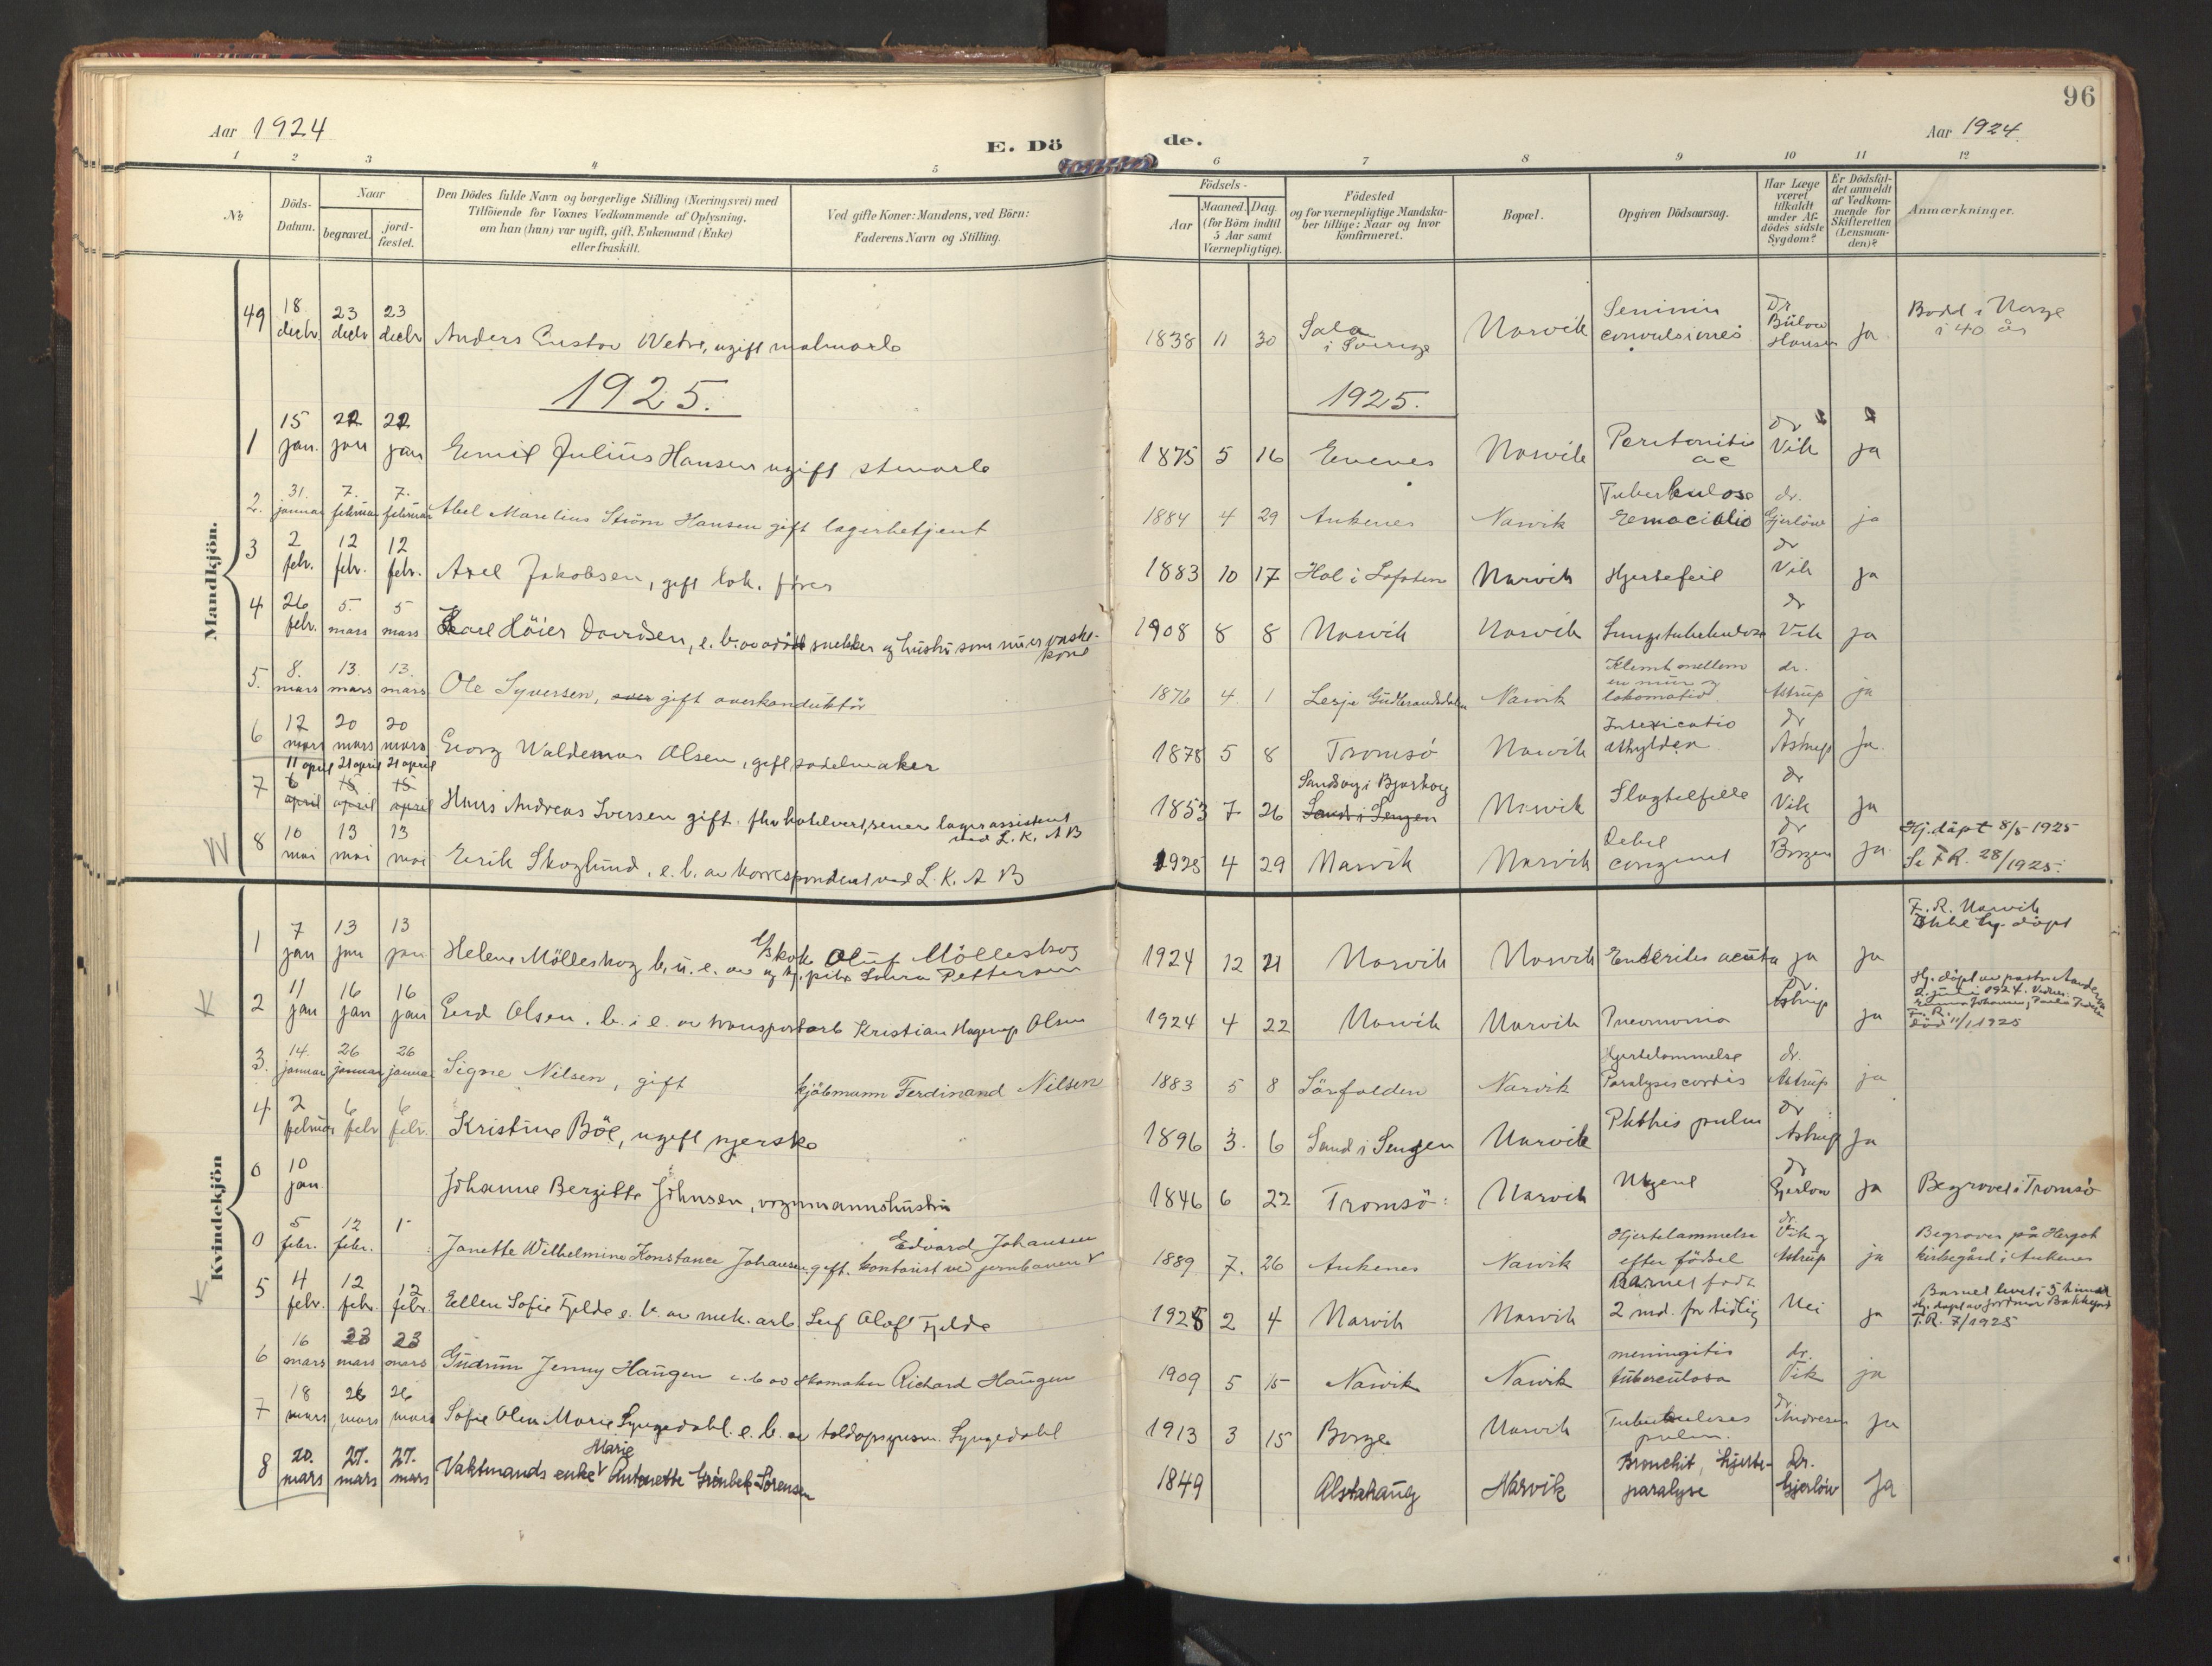 96
Aar 1924
E. Dö de.
Aar 1924.
1 2 3 4 5 6 7 8 9 10 11 12
№
Döds-
Datum.
Naar
begravet.
jord-
fæstet.
Den Dödes fulde Navn og borgerlige Stilling (Næringsvei) med
Tilföiende for Voxnes Vedkommende af Oplysning,
om han (hun) var ugift, gift, Enkemand (Enke)
eller fraskilt.
Ved gifte Koner: Mandens, ved Börn:
Faderens Navn og Stilling.
Födsels-
Aar
Maaned. Dag
(for Börn indtil
5 Aar samt
Værnepligtige).
Födested
og for værnepligtige Mandska-
ber tillige: Naar og hvor
Konfirmeret.
Bopæl.
Opgiven Dödsaarsag.
Har Læge
været
tilkaldt
under Af-
dödes sidste
Sygdom?
Er Dödsfal-
det anmeldt
af Vedkom-
mende for
Skifteretten
(Lensman-
den)?
Anmærkninger.
Mandkjön.
49 18 decbr 23 decbr 23 decbr Anders Gustav, ugift malmarb 1838 11 30 Sala i Sverige Narvik convulsiones Dr Bülow Hansen ja Bodd i Norge i 40 år
1925. 1925.
1 15 jan. 22 jan 22 jan Emil Julius Hansen ugift 1875 5 16 Evenes Narvik Peritonitis ac dr Vik ja
2. 31. januar 7. februar 7. februar Abel Marelius Ström Hansen gift lagerbetjent 1884 4 29 Ankenes Narvik Tuberkulose dr. Gjerlöw ja
3 2 febr. 12 febr. 12 febr. Axel Jakobsen, gift lok. förer 1883 10 17 Hol i Lofoten Narvik Hjertefeil dr Vik ja
4 26 febr. 5. mars 5 mars Karl Höier Davidsen, e. b. av död snekker og hustru som nu er vaske-
kone 1908 8 8 Narvik Narvik Lungetuberkulose dr Vik ja
5. 8. mars 13 mars 13. mars Ole Syversen, gift overkonduktör 1876 4. 1 Lesje Gudbrandsdalen Narvik Klemt mellem en mur og lokomotiv dr. Astrup ja
6 12 mars 20 mars 20 mars Georg Waldemar Olsen, gift sadelmaker 1878 5 8 Tromsö Narvik Intoxicatio dr Astrup ja.
7 11 april 21 april 21 april 6 april 15 april 15 april Hans Andreas Iversen gift. fhv hotelvert, senere lagerassistent
ved L. K. A B 1853 7 26 Sandvog i Bjarkøy Sand i Senjen Narvik Slagtilfelle dr Vik ja
8 10 mai 13 mai 13 mai Erik Skoglund, e. b. av korrespondent ved L. K. A B 1925 4 29 Narvik Narvik Debil congenit dr Borgen ja Hj. döpt 8/5 1925
Se F R. 28/1925.
Kvindekjön
1 7 jan 13 jan 13 jan Helene Mölleskog b. u. e. av Oluf Mölleskog
og pike Laura Pettersen 1924 12 21 Narvik Narvik Enterites acuta ja ja F. R. Narvik
Ikke hj. döpt
2 11 jan 16 jan 16 jan Gerd Olsen. b. i e. av transportarb Kristian Hagerup Olsen 1924 4 22 Narvik Narvik Pneumonia dr Astrup ja Hj. döpt av pastor
2. juli 1924.
F. R.
död 11/1 1925
3. 14. januar 26 januar 26 januar Signe Nilsen, gift kjöbmann Ferdinand Nilsen 1883 5 8 Sörfolden Narvik Hjertelammelse Paralysis cordis dr. Astrup ja
4 2 februar 6 febr 6 febr. Kristine Böe, ugift syerske 1896 3. 6 Sand i Senjen Narvik Phthis pulm dr Astrup ja
0 10 jan Johanne Bergitte Johnsen, vognmannshustru 1846 6 22 Tromsö Narvik dr Gjerlow ja Begravet i Tromsö
0 5 febr. 12 febr. Janette Wilhelmine Konstance Johansen. gift. Edvard Johansen
kontorist ved jernbanen 1889 7. 26 Ankenes Narvik Hjertelammelse efter födsel dr. Vik og Astrup ja Begraves på Hergot
kirkegård i Ankenes
5 4 febr. 12 febr. 12 febr. Ellen Sofie Fjelde e. b. av mek. arb Leif Olaf Fjelde 1925 2 4 Narvik Narvik Barnet födt 2 md. for tidlig Nei ja Barnet levet i 5 timer
Hj. döpt av jordmor
F. R. 7/1925
6 16 mars 23 mars 23 mars Gudrun Jenny Haugen e. b av skomaker Richard Haugen 1909 5 15 Narvik Narvik meningitis tuberculosa dr. Vik ja
7 18 mars 26 mars 26 mars Sofie Olea Marie Lyngedahl. e. b. av toldopsynsm. Lyngedahl 1913 3 15 Borge Narvik Tuberkuloses pulm. dr. Andresen ja
8 20. mars 27. mars 27. mars Vaktmands enke Marie Antonette Grönbek Sörensen 1849 Alstahaug Narvik Bronchit, hjerte-
paralyse Dr. Gjerlöw Ja